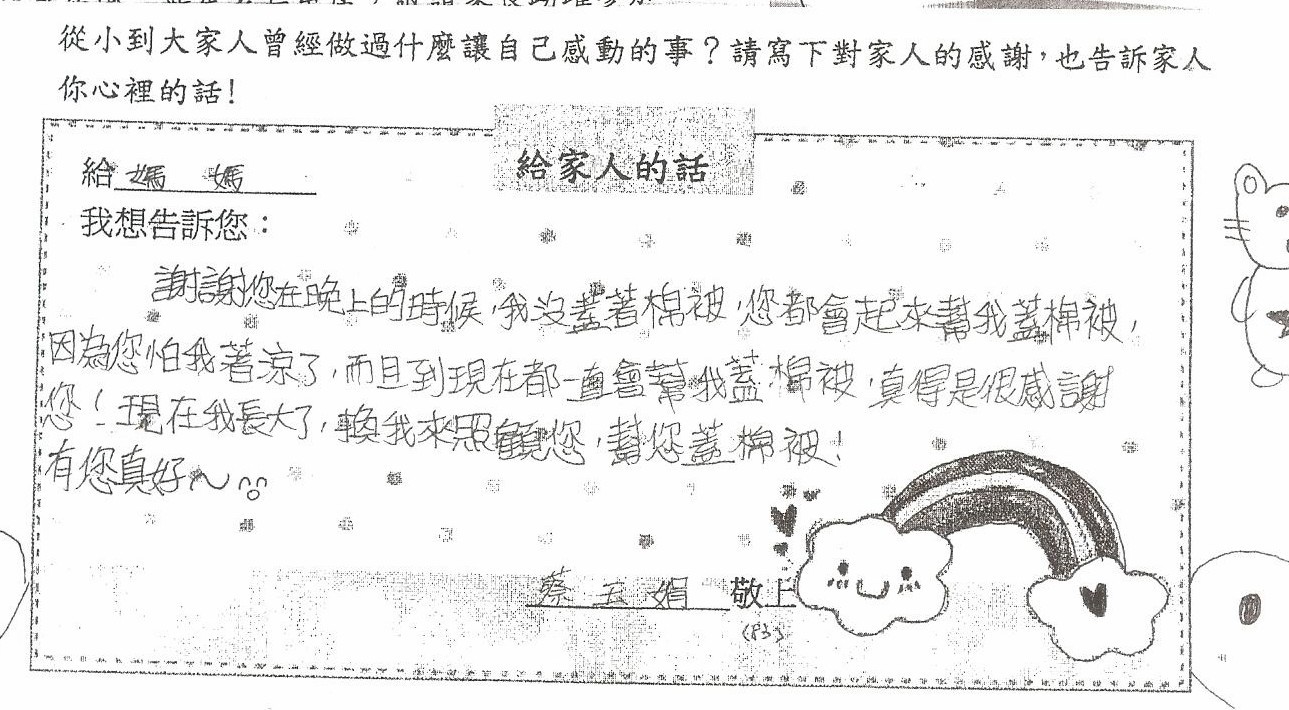 從小到大家人曾經做過什麼讓自己感動的事？請寫下對家人的感謝，也告訴家人
你心裡的話！
給家人的話
給媽 媽
我想告訴您：
謝謝您在晚上的時候，我沒蓋著棉被，您都會起來幫我蓋棉被，
因為您怕我著涼了，而且到現在都一直會幫我蓋棉被，真得是很感謝
您！現在我長大了，換我來照顧您，幫您蓋棉被！
有您真好～
蔡玉娟 敬上